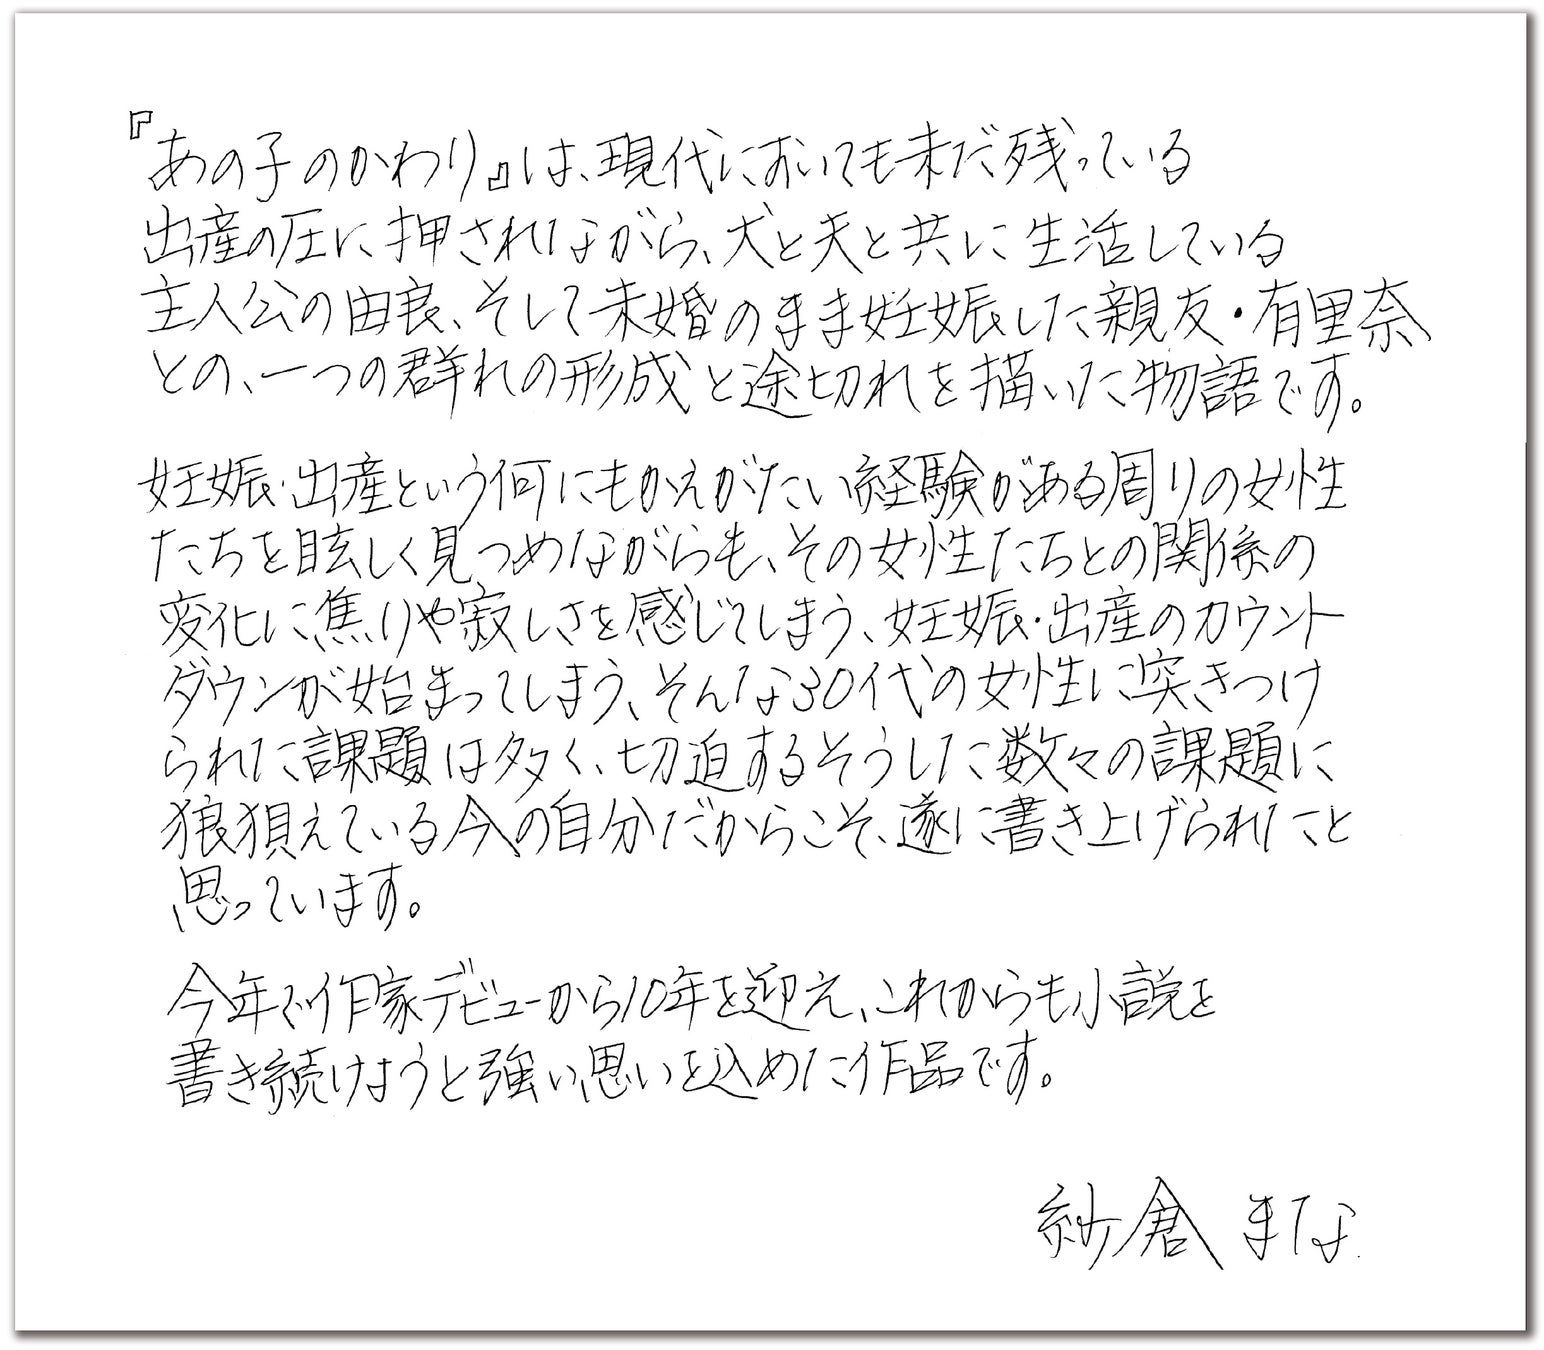 『あの子のかわり』は、現代においても未だ残っている
出産の圧に押されながら、犬と夫と共に生活している
主人公の由良、そして未婚のまま妊娠した親友・有里奈
との、一つの群れの形成と途切れを描いた物語です。
妊娠・出産という何にもかえがたい経験がある周りの女性
たちを眩しく見つめながらも、その女性たちとの関係の
変化に焦りや寂しさを感じてしまう、妊娠・出産のカウント
ダウンが始まってしまう、そんな30代の女性に突きつけ
られた課題は多く、切迫するそうした数々の課題に
狼狽えている今の自分だからこそ、遂に書き上げられたこと
思っています。
今年で作家デビューから10年を迎え、これからも小説を
書き続けようと強い思いを込めた作品です。
紗倉まな